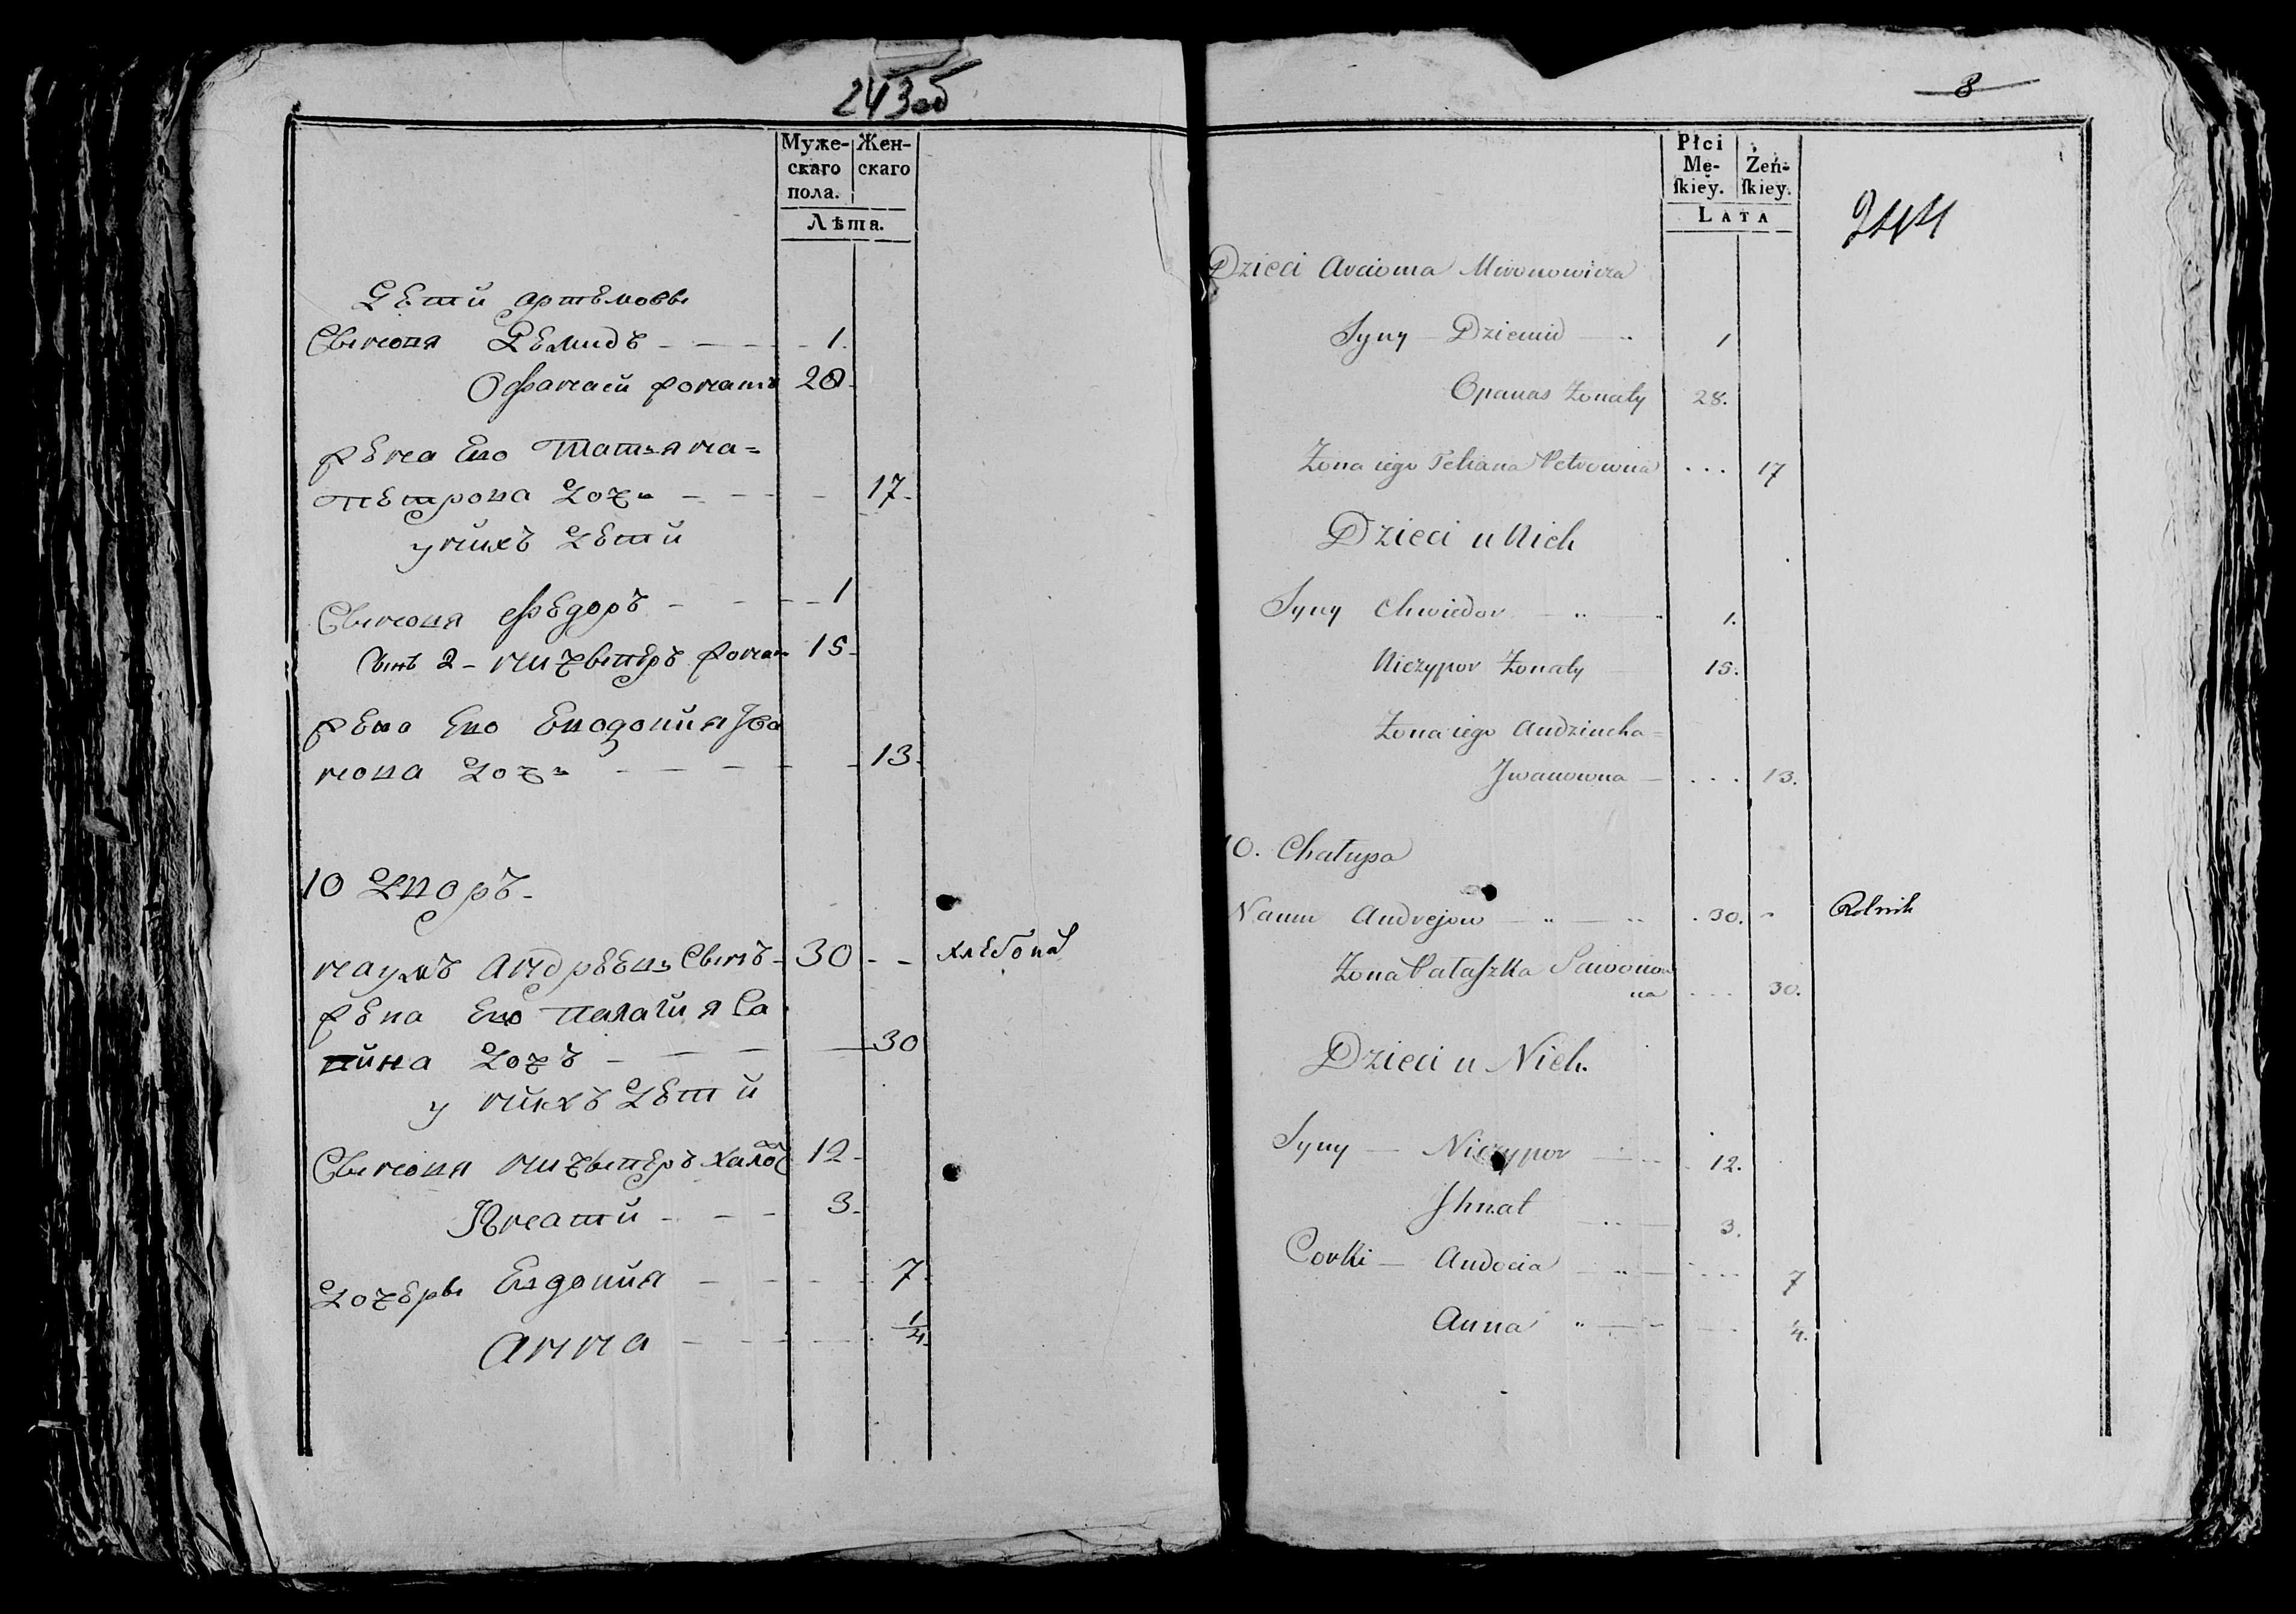 243об
Муже-
скаго
пола.
Жен-
скаго
Лѣта.
Дети Артемовы
Сыновя Демидъ - - - 1.
Офанасй жонатъ 28.
жена Ево Татьяна=
Петрова Дочь - - - 17.
у нихъ Дети
Сыновя Федоръ - - - 1
Сынъ 2 - Ничыперъ жонат 15.
жена Ево Еводокия Ива
нова Дочь - - - 13.
10 Дворъ.
наумъ Андреевъ Сынъ - 30 - - хлебопа
жена Ево Палагия Са
вина Дочъ - - - 30
у нихъ Дети
Сыновя Ничыперъ холос 12.
Игнатй - - - 3.
Дочеры Евдокия - - - 7.
Анна - - - 1/4.
8
Płci
Mę-
ſkiey.
Żeń-
ſkiey.
LATA
244
Dzieci Arcioma Mironowicza
Syny - Dziemid - 1
Opanas Żonaty 28.
Żona iego Tetiana Petrowna ... 17
Dzieci u Nich
Syny Chwiedor - 1.
Niczypor Żonaty 15.
Żona iego Audziucha=
Jwanowna - ... 13.
10. Chałupa
Naum Andrejow - 30. - Rolnik
Żona Pałaſzka Sawonow
na ... 30.
Dzieci u Nich.
Syny - Niczypor - 12.
Jhnat - 3.
Corki - Audocia - ... 7
Anna - ... 1/4.